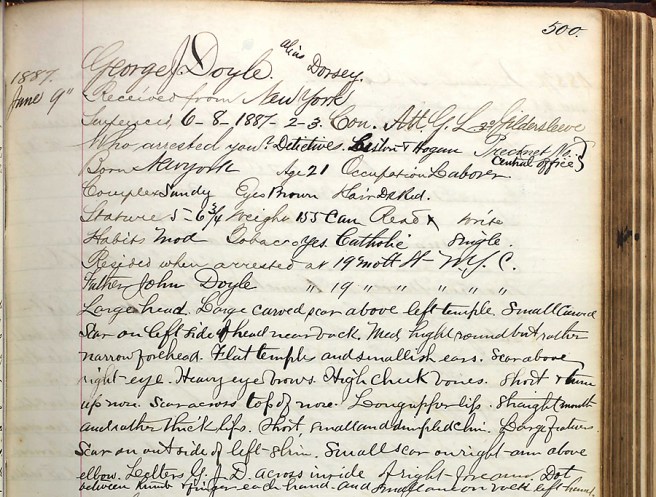 500.
1887. George J. Doyle. alias Dorsey.
June 9" Received from New York
Sentenced 6-8-1887- 2-3. Con. Att. G. L 2º Gildersleeve
Who arrested you? Detectives. & Hogan Precinct No. Central office
Born New York Age 21 Occupation Laborer
Complex Sandy Eyes Brown Hair Dk Red.
Stature 5-6 3/4 Weighs 155 Can Read & Write
Habits Mod Tobacco yes. Catholic Single.
Resided when arrested at 19 Mott St- N.Y.C.
Father John Doyle " 19 " " " " "
Large head. Large curved scar above left temple. Small curved
Scar on left side of head near back. Med. hight round but rather
narrow forehead. Flat temples and smallish ears. Scar above
right-eye. Heavy eye brows. High cheek bones. Short & turn
up nose. Scar across top of nose. Long upper lip. Straight mouth
and rather thick lips. Short, small and dimpled chin. Large features.
Scar on outside of left-shin. Small scar on right-arm above
elbow. Letters G. J. D. across inside of right-forearm. Dot
between thumb & finger each hand. and small on back left-hand